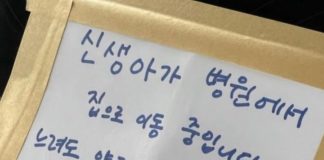 신생아가 병원에서
집으로 이동 중입니다
느려도